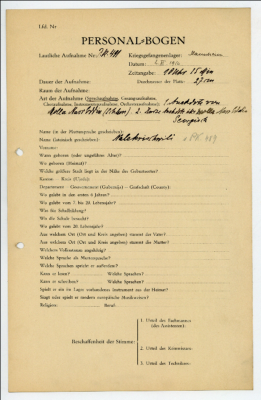 Lfd. Nr.
PERSONAL-BOGEN
Lautliche Aufnahme Nr.: PK 411 Kriegsgefangenenlager:
Datum:
Zeitangabe: 10 Uhr 15
Dauer der Aufnahme: Durchmesser der Platte: 27 cm
Raum der Aufnahme:
Art der Aufnahme (Sprechaufnahme, Gesangsaufnahme, 1. Anekdote von
Choraufnahme, Instrumentenaufnahme, Orchesteraufnahme): Molla 2.
Name (in der Muttersprache geschrieben):
Name (lateinisch geschrieben):
Vorname:
Wann geboren (oder ungefähres Alter)?
Wo geboren (Heimat)?
Welche größere Stadt liegt in der Nähe des Geburtsortes?
Kanton – Kreis (Ujedz):
Department – Gouvernement (Gubernija) – Grafschaft (County):
Wo gelebt in den ersten 6 Jahren?
Wo gelebt vom 7. bis 20. Lebensjahr?
Was für Schulbildung?
Wo die Schule besucht?
Wo gelebt vom 20. Lebensjahr?
Aus welchem Ort (Ort und Kreis angeben) stammt der Vater?
Aus welchem Ort (Ort und Kreis angeben) stammt die Mutter?
Welchem Volksstamm angehörig?
Welche Sprache als Muttersprache?
Welche Sprachen spricht er außerdem?
Kann er lesen? Welche Sprachen?
Kann er schreiben? Welche Sprachen?
Spielt er ein im Lager vorhandenes Instrument aus der Heimat?
Singt oder spielt er modern europäische Musikweisen?
Religion: Beruf:
Beschaffenheit der Stimme:
1. Urteil des Fachmannes
(des Assistenten):
2. Urteil des Kommissars:
3. Urteil des Technikers: